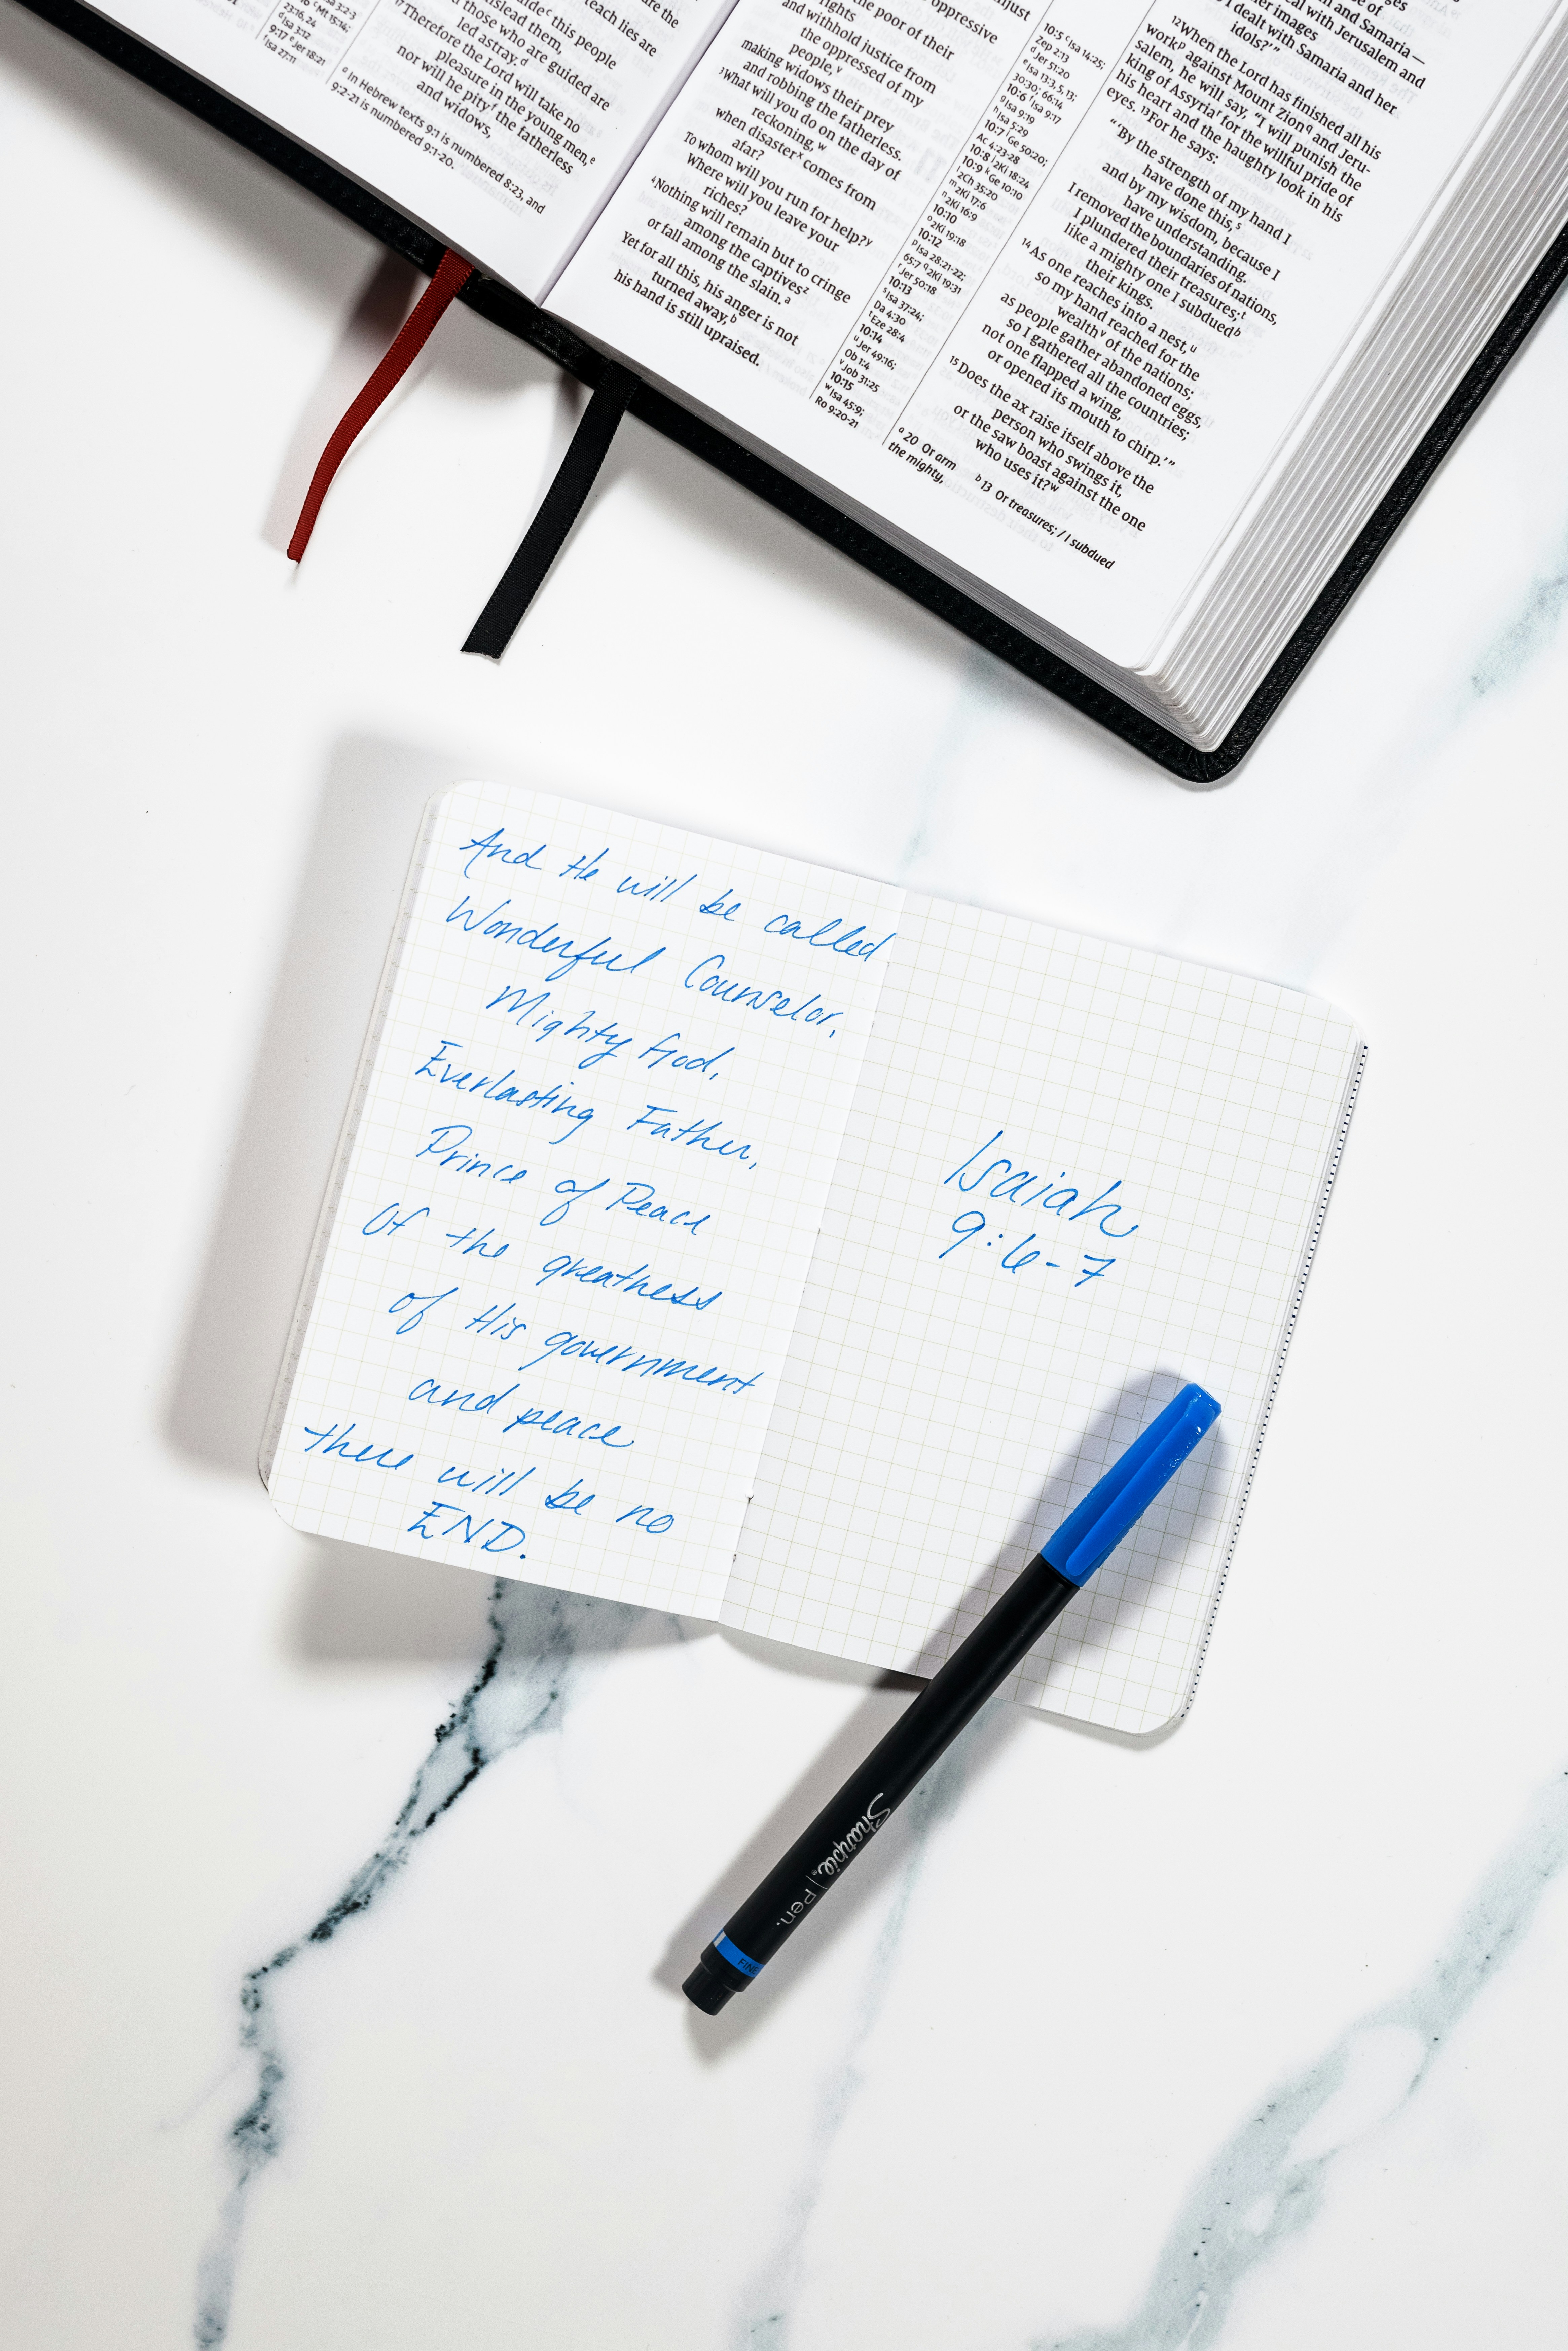 teach lies are
mislead them,
guide this people
led astray.ᵈ
those who are guided are
¹⁷Therefore the Lord will take no
pleasure in the young men,ᵉ
nor will he pityᶠ the fatherless
and widows,
ᵃ In Hebrew texts 9:1 is numbered 8:23, and
9:2-21 is numbered 9:1-20.
23:16, 24
ᵈ Isa 3:12
9:17 ᵉ Jer 18:21
ᶠ Isa 27:11
oppressive
the poor of their
rights
and withhold justice from
the oppressed of my
people,ᵛ
making widows their prey
and robbing the fatherless.
³What will you do on the day of
reckoning,ʷ
when disasterˣ comes from
afar?
To whom will you run for help?ʸ
Where will you leave your
riches?
⁴Nothing will remain but to cringe
among the captivesᶻ
or fall among the slain.ᵃ
Yet for all this, his anger is not
turned away,ᵇ
his hand is still upraised.
10:5 ᶜ Isa 14:25;
Zep 2:13
ᵈ Jer 51:20
ᵉ Isa 13:3, 5, 13;
30:30; 66:14
10:6 ᶠ Isa 9:17
ᵍ Isa 9:19
ʰ Isa 5:29
10:7 ⁱ Ge 50:20;
Ac 4:23-28
10:8 ʲ 2Ki 18:24
10:9 ᵏ Ge 10:10
ˡ 2Ch 35:20
ᵐ 2Ki 17:6
ⁿ 2Ki 16:9
10:10
ᵒ 2Ki 19:18
10:12
ᵖ Isa 28:21-22;
65:7 ᑫ 2Ki 19:31
ʳ Jer 50:18
10:13
ˢ Isa 37:24;
Da 4:30
ᵗ Eze 28:4
10:14
ᵘ Jer 49:16;
Ob 1:4
ᵛ Job 31:25
10:15
ʷ Isa 45:9;
Ro 9:20-21
and Samaria—
deal with Jerusalem and
I dealt with Samaria and her
idols?’”
¹²When the Lord has finished all his
workᵖ against Mount Zionᑫ and Jeru-
salem, he will say, “I will punish the
king of Assyriaʳ for the willful pride of
his heart and the haughty look in his
eyes. ¹³For he says:
“‘By the strength of my hand I
have done this,ˢ
and by my wisdom, because I
have understanding.
I removed the boundaries of nations,
I plundered their treasures;ᵗ
like a mighty one I subduedᵇ
their kings.
¹⁴As one reaches into a nest,ᵘ
so my hand reached for the
wealthᵛ of the nations;
as people gather abandoned eggs,
so I gathered all the countries;
not one flapped a wing,
or opened its mouth to chirp.’”
¹⁵Does the ax raise itself above the
person who swings it,
or the saw boast against the one
who uses it?ʷ
ᵃ 20 Or arm
the mighty,
ᵇ 13 Or treasures; / I subdued
And He will be called
Wonderful Counselor,
Mighty God,
Everlasting Father,
Prince of Peace
Of the greatness
of His government
and peace
there will be no
END.
Isaiah
9:6-7
Sharpie® | Pen.
FINE